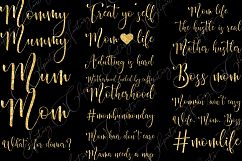 Mommy
Mummy
Mum
Mom
What's for dinner?
Treat yo self
Mom life
Adulting is hard
Motherhood fueled by coffee
Motherhood
#mombunmonday
Mom hair, don't care
Mama needs a nap
Mom life
The hustle is real
Mother hustler
Boss mom
Mommin' ain't easy
#momlife